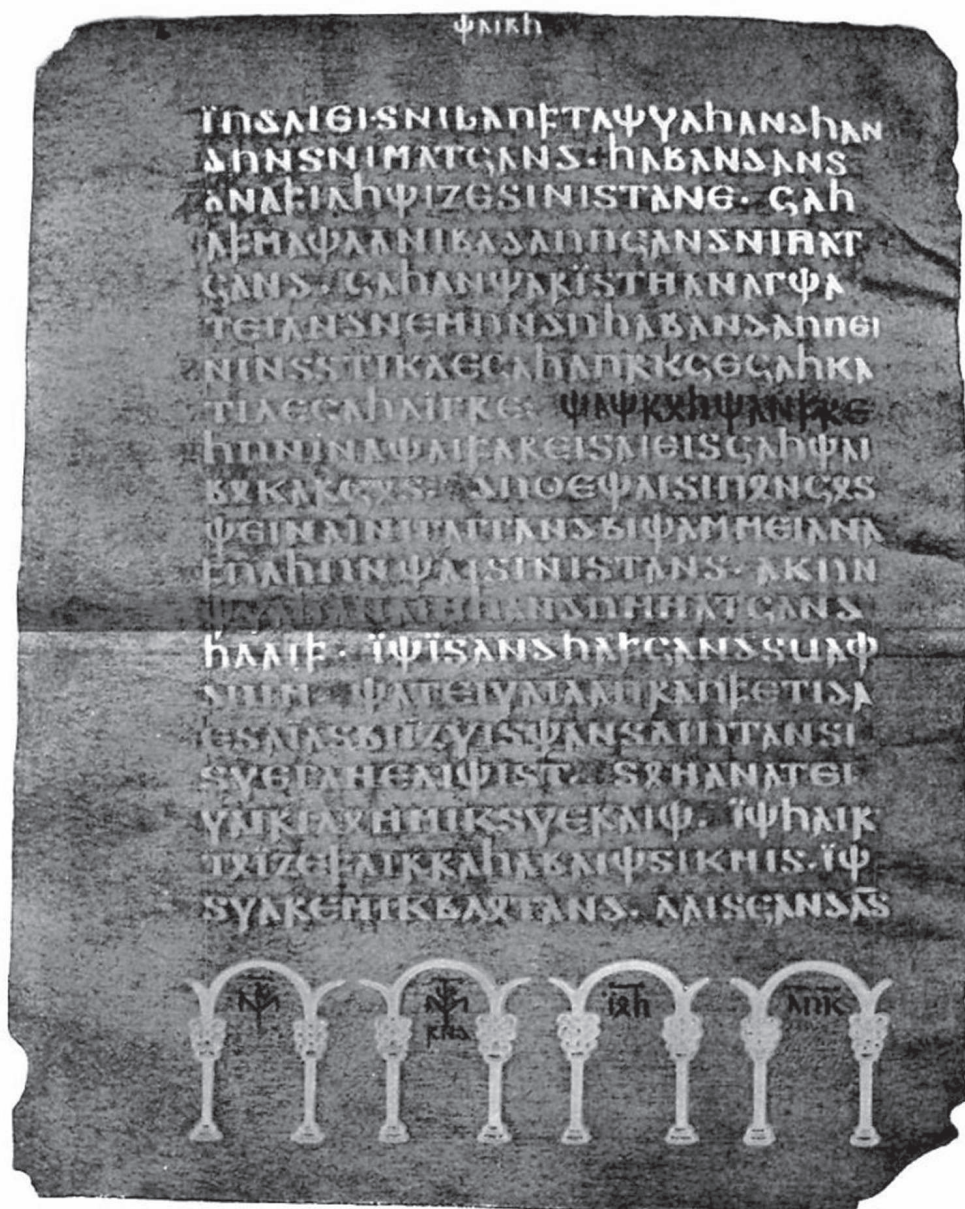 𐌸𐌰𐌹𐍂𐌷
𐌹̈𐌿𐌳𐌰𐌹𐌴𐌹𐍃·𐌽𐌹𐌱𐌰𐌿𐍆𐍄𐌰𐌸𐍅𐌰𐌷𐌰𐌽𐌳𐌷𐌰𐌽
𐌳𐌿𐌽𐍃𐌽𐌹𐌼𐌰𐍄𐌾𐌰𐌽𐌳·𐌷𐌰𐌱𐌰𐌽𐌳𐌰𐌽𐍃
𐌰𐌽𐌰𐍆𐌹𐌻𐌷𐌸𐌹𐌶𐌴𐍃𐌹𐌽𐌹𐍃𐍄𐌰𐌽𐌴·𐌾𐌰𐌷
𐌰𐍆𐌼𐌰𐌸𐌻𐌰𐌽𐌹𐌱𐌰𐌳𐌰𐌿𐍀𐌾𐌰𐌽𐌳𐌽𐌹𐌼𐌰𐍄
𐌾𐌰𐌽𐌳·𐌾𐌰𐌷𐌰𐌽𐌸𐌰𐍂𐌹̈𐍃𐍄𐌼𐌰𐌽𐌰𐌲𐌸𐌰
𐍄𐌴𐌹𐌰𐌽𐌳𐌽𐌴𐌼𐌿𐌽𐌳𐌿𐌷𐌰𐌱𐌰𐌽𐌳𐌰𐌿𐍀𐌴𐌹
𐌽𐌹𐌽𐍃𐍃𐍄𐌹𐌺𐌻𐌴𐌾𐌰𐌷𐌰𐌿𐍂𐌺𐌾𐌴𐌾𐌰𐌷𐌺𐌰
𐍄𐌹𐌻𐌴𐌾𐌰𐌷𐌻𐌹𐌲𐍂𐌴·𐌸𐌰𐌸𐍂𐍉𐌷𐌸𐌰𐌽𐍆𐍂𐌴
𐌷𐌿𐌽𐌹̈𐌽𐌰𐌸𐌰𐌹𐍆𐌰𐍂𐌴𐌹𐍃𐌰𐌹𐌴𐌹𐍃𐌾𐌰𐌷𐌸𐌰𐌹
𐌱𐍉𐌺𐌰𐍂𐌾𐍉𐍃·𐌳𐌿𐍈𐌴𐌸𐌰𐌹𐍃𐌹𐍀𐍉𐌽𐌾𐍉𐍃
𐌸𐌴𐌹𐌽𐌰𐌹𐌽𐌹𐌲𐌰𐌲𐌲𐌰𐌽𐌳𐌱𐌹𐌸𐌰𐌼𐌼𐌴𐌹𐌰𐌽𐌰
𐍆𐌿𐌻𐌷𐌿𐌽𐌸𐌰𐌹𐍃𐌹𐌽𐌹𐍃𐍄𐌰𐌽𐍃·𐌰𐌺𐌿𐌽
𐌷𐌻𐌰𐌹𐍆·𐌹̈𐌸𐌹̈𐍃𐌰𐌽𐌳𐌷𐌰𐍆𐌾𐌰𐌽𐌳𐍃𐌵𐌰𐌸
𐌳𐌿𐌹𐌼·𐌸𐌰𐍄𐌴𐌹𐍅𐌰𐌹𐌻𐌰𐍀𐍂𐌰𐌿𐍆𐌴𐍄𐌹𐌳𐌰
𐌴𐍃𐌰𐌹̈𐌰𐍃𐌱𐌹𐌹𐌶𐍅𐌹𐍃𐌸𐌰𐌽𐍃𐌻𐌹𐌿𐍄𐌰𐌽𐍃·
𐍃𐍅𐌴𐌲𐌰𐌼𐌴𐌻𐌹𐌸𐌹𐍃𐍄·𐍃𐍉𐌼𐌰𐌽𐌰𐌲𐌴𐌹
𐍅𐌰𐌹𐍂𐌹𐌻𐍉𐌼𐌼𐌹𐌺𐍃𐍅𐌴𐍂𐌰𐌹𐌸·𐌹̈𐌸𐌷𐌰𐌹𐍂
𐍄𐍉𐌹̈𐌶𐌴𐍆𐌰𐌹𐍂𐍂𐌰𐌷𐌰𐌱𐌰𐌹𐌸𐍃𐌹𐌺𐌼𐌹𐍃·𐌹̈𐌸
𐍃𐍅𐌰𐍂𐌴𐌼𐌹𐌺𐌱𐌻𐍉𐍄𐌰𐌽𐌳·𐌻𐌰𐌹𐍃𐌾𐌰𐌽𐌳𐌰̅𐍃
𐌹̈𐍉𐌷 𐌻𐌿𐌺